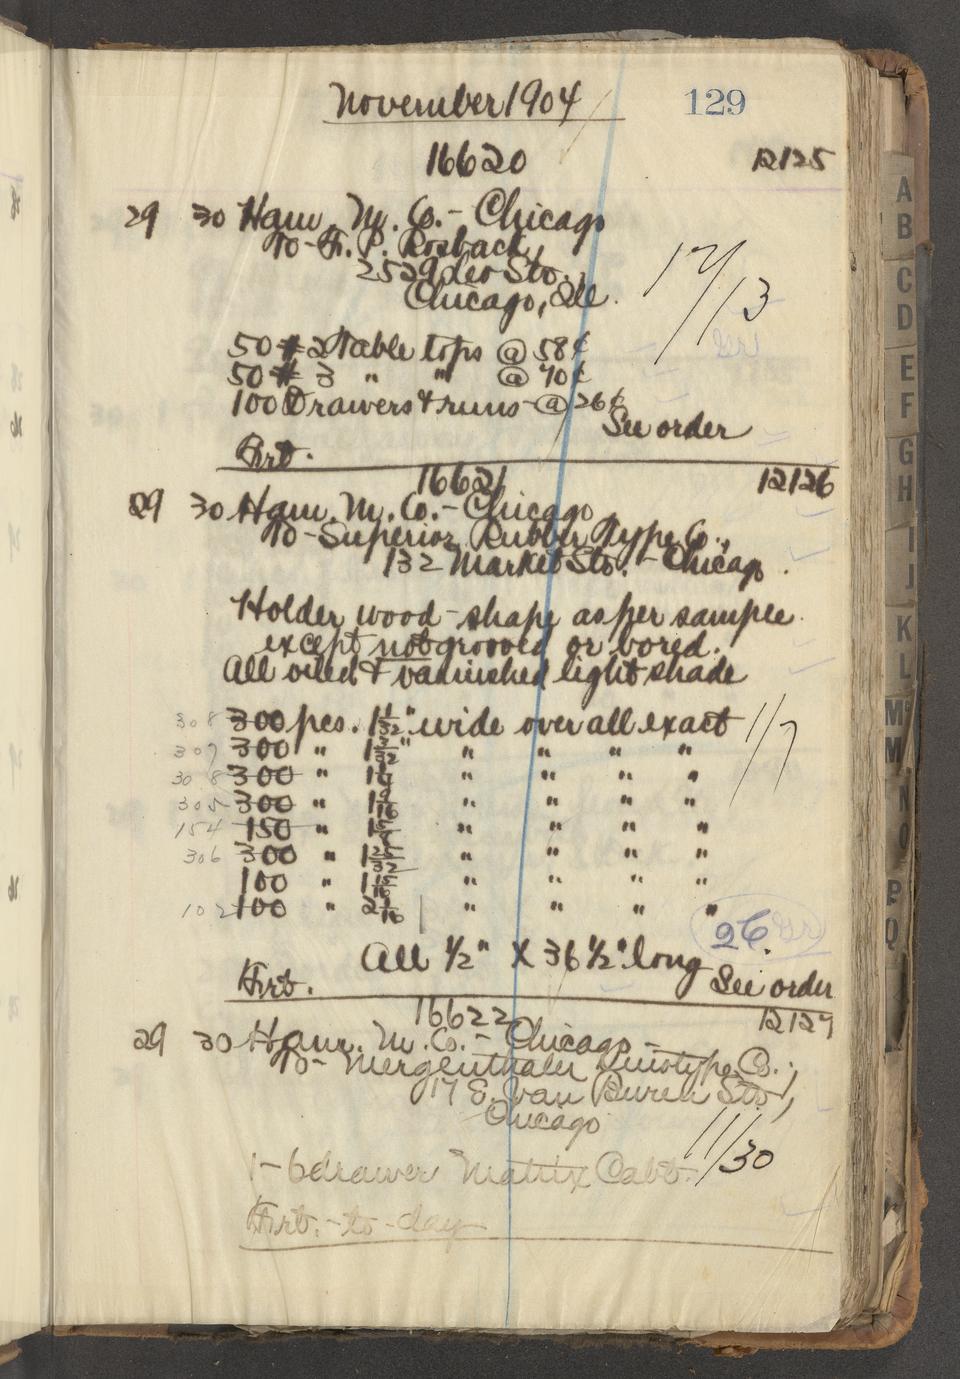 November 1904 129
16620 12125
29 30 Ham. M. Co. - Chicago
To - F. P. Rosback,
Chicago, Ill.
12/13
50 # 2 Table tops @ 58¢
50 # 3 " " @ 70¢
100 Drawers & runs @ 26¢
See order
Frt.
16621 12126
29 30 Ham. M. Co. - Chicago
To - Superior Rubber Type Co.,
132 Market St. - Chicago.
Holder wood - shape as per sample
except not grooved or bored.
All oiled & varnished light shade
308 300 pcs. 1 1/32" wide over all exact 1/7
307 300 " 1 3/32" " " " "
308 300 " 1 1/4 " " " "
305 300 " " " " "
154 150 " " " " "
306 300 " " " " "
100 " " " " "
102 100 " 2 1/16 " " " "
26 Gr
All 1/2" X 36 1/2" long
Frt. See order
16622 12127
29 30 Ham. M. Co. - Chicago -
To - Mergenthaler Linotype Co.,
17 E. Van Buren St.,
Chicago
11/30
1 - 6 drawer Matrix Cabt.
Frt. - to - day
A
B
C
D
E
F
G
H
I
J
K
L
Mc
M
N
O
P
Q